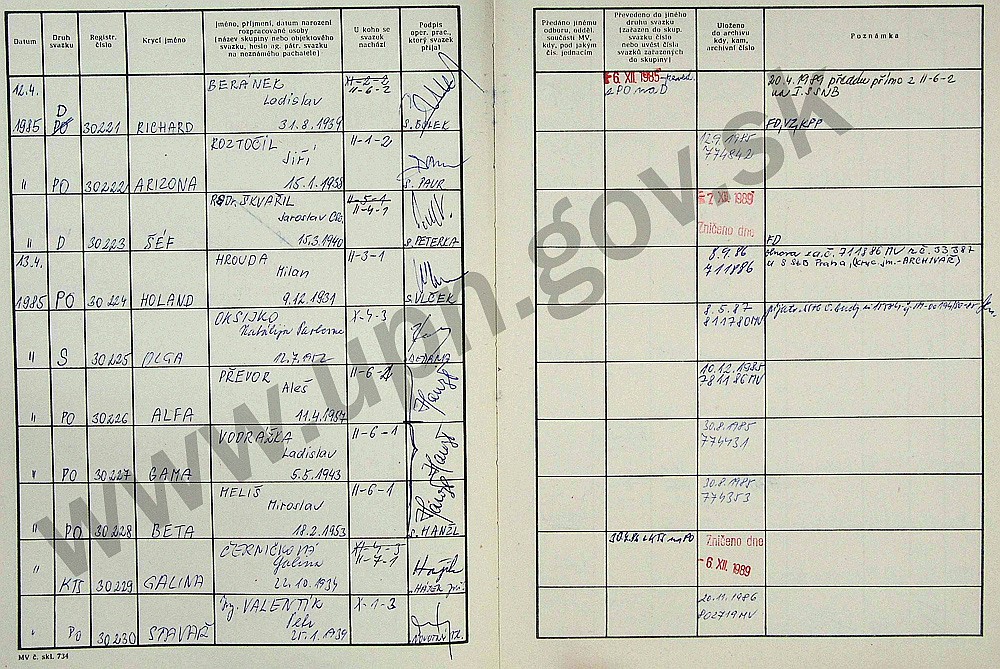 Datum
Druh svazku
Registr. číslo
Krycí jméno
Jméno, příjmení, datum narození rozpracované osoby (název skupiny nebo objektového svazku, heslo ag. pátr. svazku na neznámého pachatele)
U koho se svazek nachází
Podpis oper. prac., který svazek přijal
Předáno jinému odboru, odděl. součásti MV, kdy, pod jakým čís. jednacím
Převedeno do jiného druhu svazku (zařazen do skup. svazku číslo nebo uvést čísla svazků zařazených do skupiny)
Uloženo do archivu kdy, kam, archivní číslo
Poznámka
12.4. 1985 D PO 30221 RICHARD BERÁNEK Ladislav 31.8.1939 II-6-2 S.BOLEK
-6. XII. 1985 z PO na D
20.4.1989 předán přímo z II-6-2 na I.S SNB
FD, VZ, KPP
" PO 30222 ARIZONA ROZTOČIL Jiří 15.1.1958 II-1-2 S. PAUR
12.9.1985 774842
" D 30223 ŠÉF RSDr. ŠKVAŘIL Jaroslav CSc. 15.3.1940 II-5-1 II-4-1 S. PETERKA
-7. XII. 1989 Zničeno dne
FD
13.4. 1985 PO 30224 HOLAND HROUDA Milan 9.12.1931 II-3-1 S.VLČEK
8.9.86 711886
711886 MV
S StB Praha, (kryc. jm.-ARCHIVÁŘ)
" S 30225 OLGA OKSIJKO 12.7.1952 X-4-3
8.5.87 811780MV
" PO 30226 ALFA PŘEVOR Aleš 11.4.1957 II-6-1
10.12.1985 781186MV
" PO 30227 GAMA VODRÁŽKA Ladislav 5.5.1943 II-6-1
30.8.1985 774431
" PO 30228 BETA MELIŠ Miroslav 18.2.1953 II-6-1 S.HANŽL
30.8.1985 774353
" KTS 30229 GALINA ČERNIČKOVÁ Galina 22.10.1934 XI-4-3 II-7-1
Zničeno dne -6. XII. 1989
" PO 30230 STAVAŘ Ing. VALENTÍK Petr 25.1.1939 X-1-3 NOVOTNÝ
20.11.1986 802719MV
MV č. skl. 734
www.upn.gov.sk